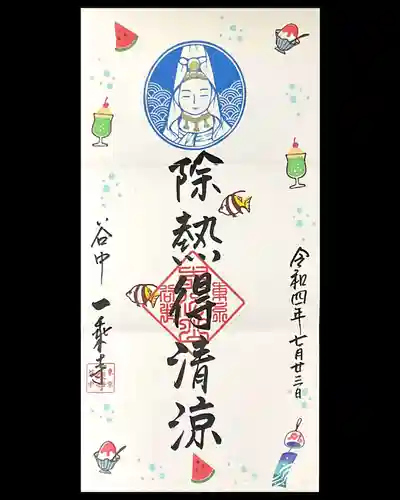 令和四年七月廿三日
除熱得清涼
谷中 一乗寺